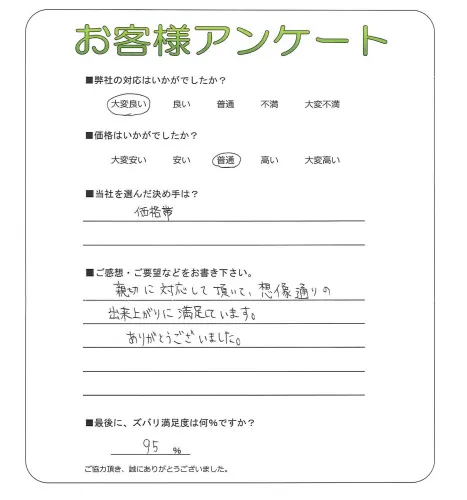 お客様アンケート
■弊社の対応はいかがでしたか？
大変良い 良い 普通 不満 大変不満
■価格はいかがでしたか？
大変安い 安い 普通 高い 大変高い
■当社を選んだ決め手は？
価格帯
■ご感想・ご要望などをお書き下さい。
親切に対応して頂いて、想像通りの
出来上がりに満足しています。
ありがとうございました。
■最後に、ズバリ満足度は何%ですか？
95 %
ご協力頂き、誠にありがとうございました。